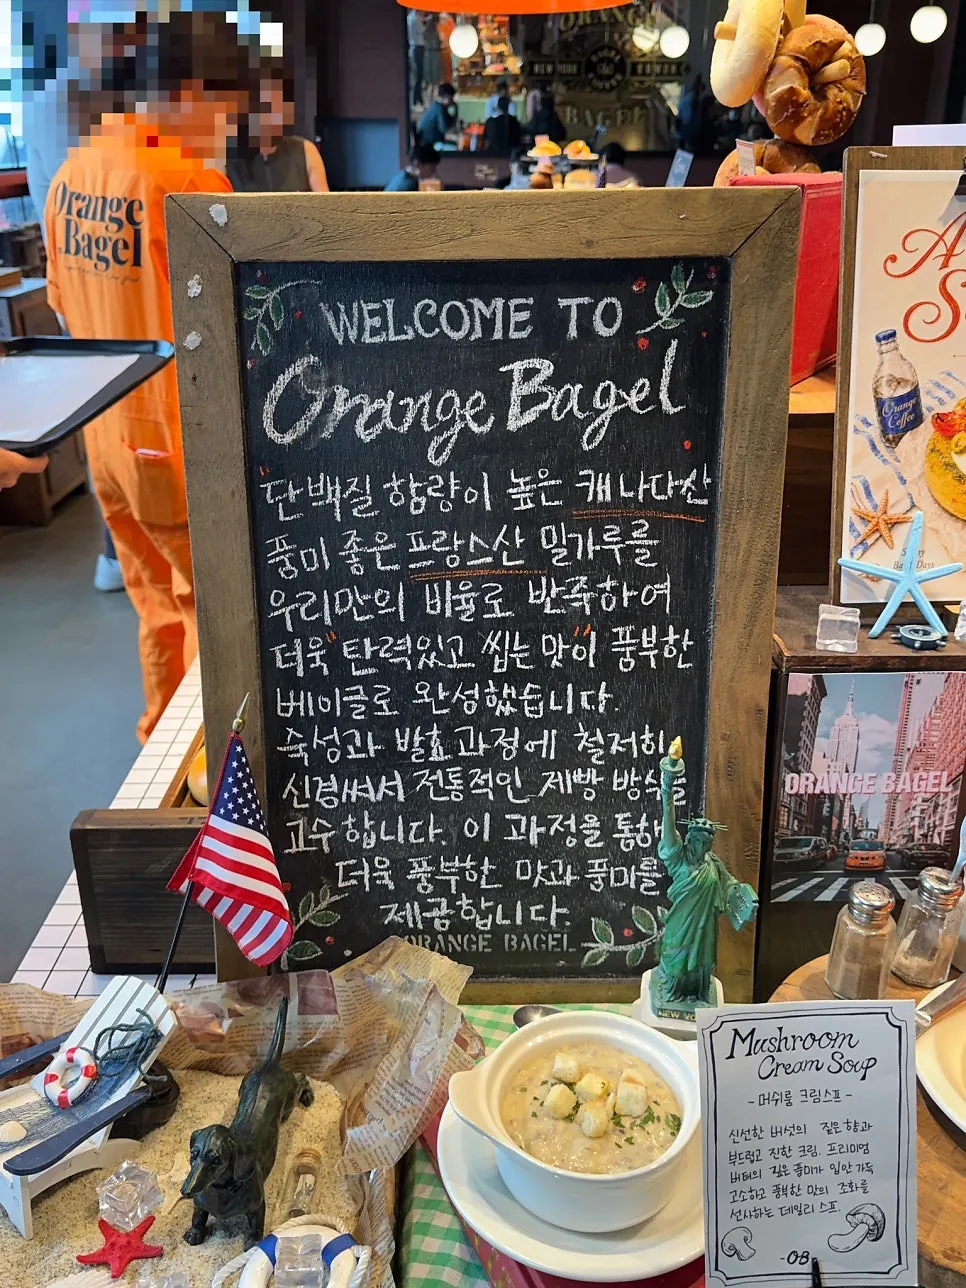 ORANGE
NEW YORK
BAGEL
Orange
Bagel
WELCOME TO
Orange Bagel
단백질 함량이 높은 캐나다산
풍미 좋은 프랑스산 밀가루를
우리만의 비율로 반죽하여
더욱 "탄력있고 씹는 맛"이 풍부한
베이글로 완성했습니다.
숙성과 발효과정에 철저히
신경써서 전통적인 제빵 방식을
고수합니다. 이 과정을 통해
더욱 풍부한 맛과 풍미를
제공합니다.
ORANGE BAGEL
Orange
Coffee
ORANGE BAGEL
NEW YO
Mushroom
Cream Soup
- 머쉬룸 크림스프 -
신선한 버섯의 짙은 향과
부드럽고 진한 크림, 프리미엄
버터의 깊은 풍미가 입안 가득
고소하고 풍부한 맛의 조화를
선사하는 데일리 스프.
-OB-